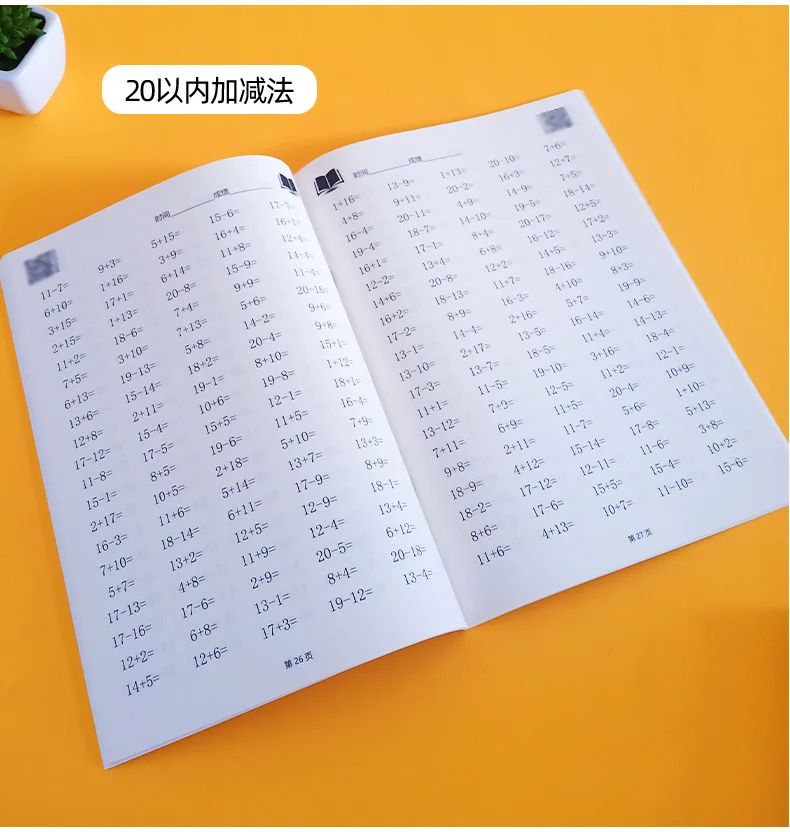 20以内加减法
时间 成绩
11−7= 9+3= 5+15= 15−6= 17−7=
6+10= 1+16= 3+9= 16+4= 16+1=
3+15= 17+1= 6+14= 11+8= 12+4=
2+15= 1+13= 20−8= 15−9= 14−4=
11+2= 18−6= 7+4= 9+9= 11−4=
7+5= 3+10= 7+13= 5+6= 20−16=
6+13= 19−13= 5+8= 14−2= 9+6=
13+6= 15−14= 18+2= 20−4= 9+8=
12+8= 2+11= 19−1= 8+10= 15+1=
17−12= 15−4= 10+6= 19−8= 1+12=
11−8= 17−5= 15+5= 12−1= 18+1=
15−1= 8+5= 19−6= 11+5= 16−4=
2+17= 10+5= 2+18= 5+10= 7+9=
16−3= 11+6= 5+14= 13+7= 13+3=
7+10= 18−14= 6+11= 17−9= 8+9=
5+7= 13+2= 12+5= 12−9= 18−1=
17−13= 4+8= 11+9= 12−4= 13+4=
17−16= 17−6= 2+9= 20−5= 6+12=
12+2= 6+8= 13−1= 8+4= 20−18=
14+5= 12+6= 17+3= 19−12= 13−4=
第 26 页
时间 成绩
1+16= 13−9= 1+13= 20−10= 7+6=
4+8= 9+11= 20−2= 16+3= 12+7=
16−4= 20−11= 4+9= 14−9= 7+5=
19−4= 18−7= 14−10= 19−5= 18−14=
16+1= 17−1= 8+4= 20−17= 12+5=
12−2= 13+4= 6+8= 16−12= 17+2=
14+6= 20−8= 12+2= 14+5= 13−3=
16+2= 18−13= 11+7= 18−16= 9+10=
17−2= 8+9= 16−3= 4+10= 8+3=
13−1= 14−4= 2+16= 5+7= 19−9=
13−10= 2+17= 13−5= 16−14= 14−6=
17−3= 13−7= 18−5= 11+4= 14−13=
11+1= 11−5= 19−10= 3+16= 18−4=
13−12= 7+9= 12−5= 11+2= 12−1=
7+11= 6+9= 11+5= 20−4= 10+9=
9+8= 2+11= 11−7= 5+6= 1+10=
18−9= 4+12= 15−14= 17−8= 5+13=
18−2= 17−12= 12−11= 11−6= 3+8=
8+6= 17−6= 15+5= 15−4= 10+2=
11+6= 4+13= 10+7= 11−10= 15−6=
第 27 页